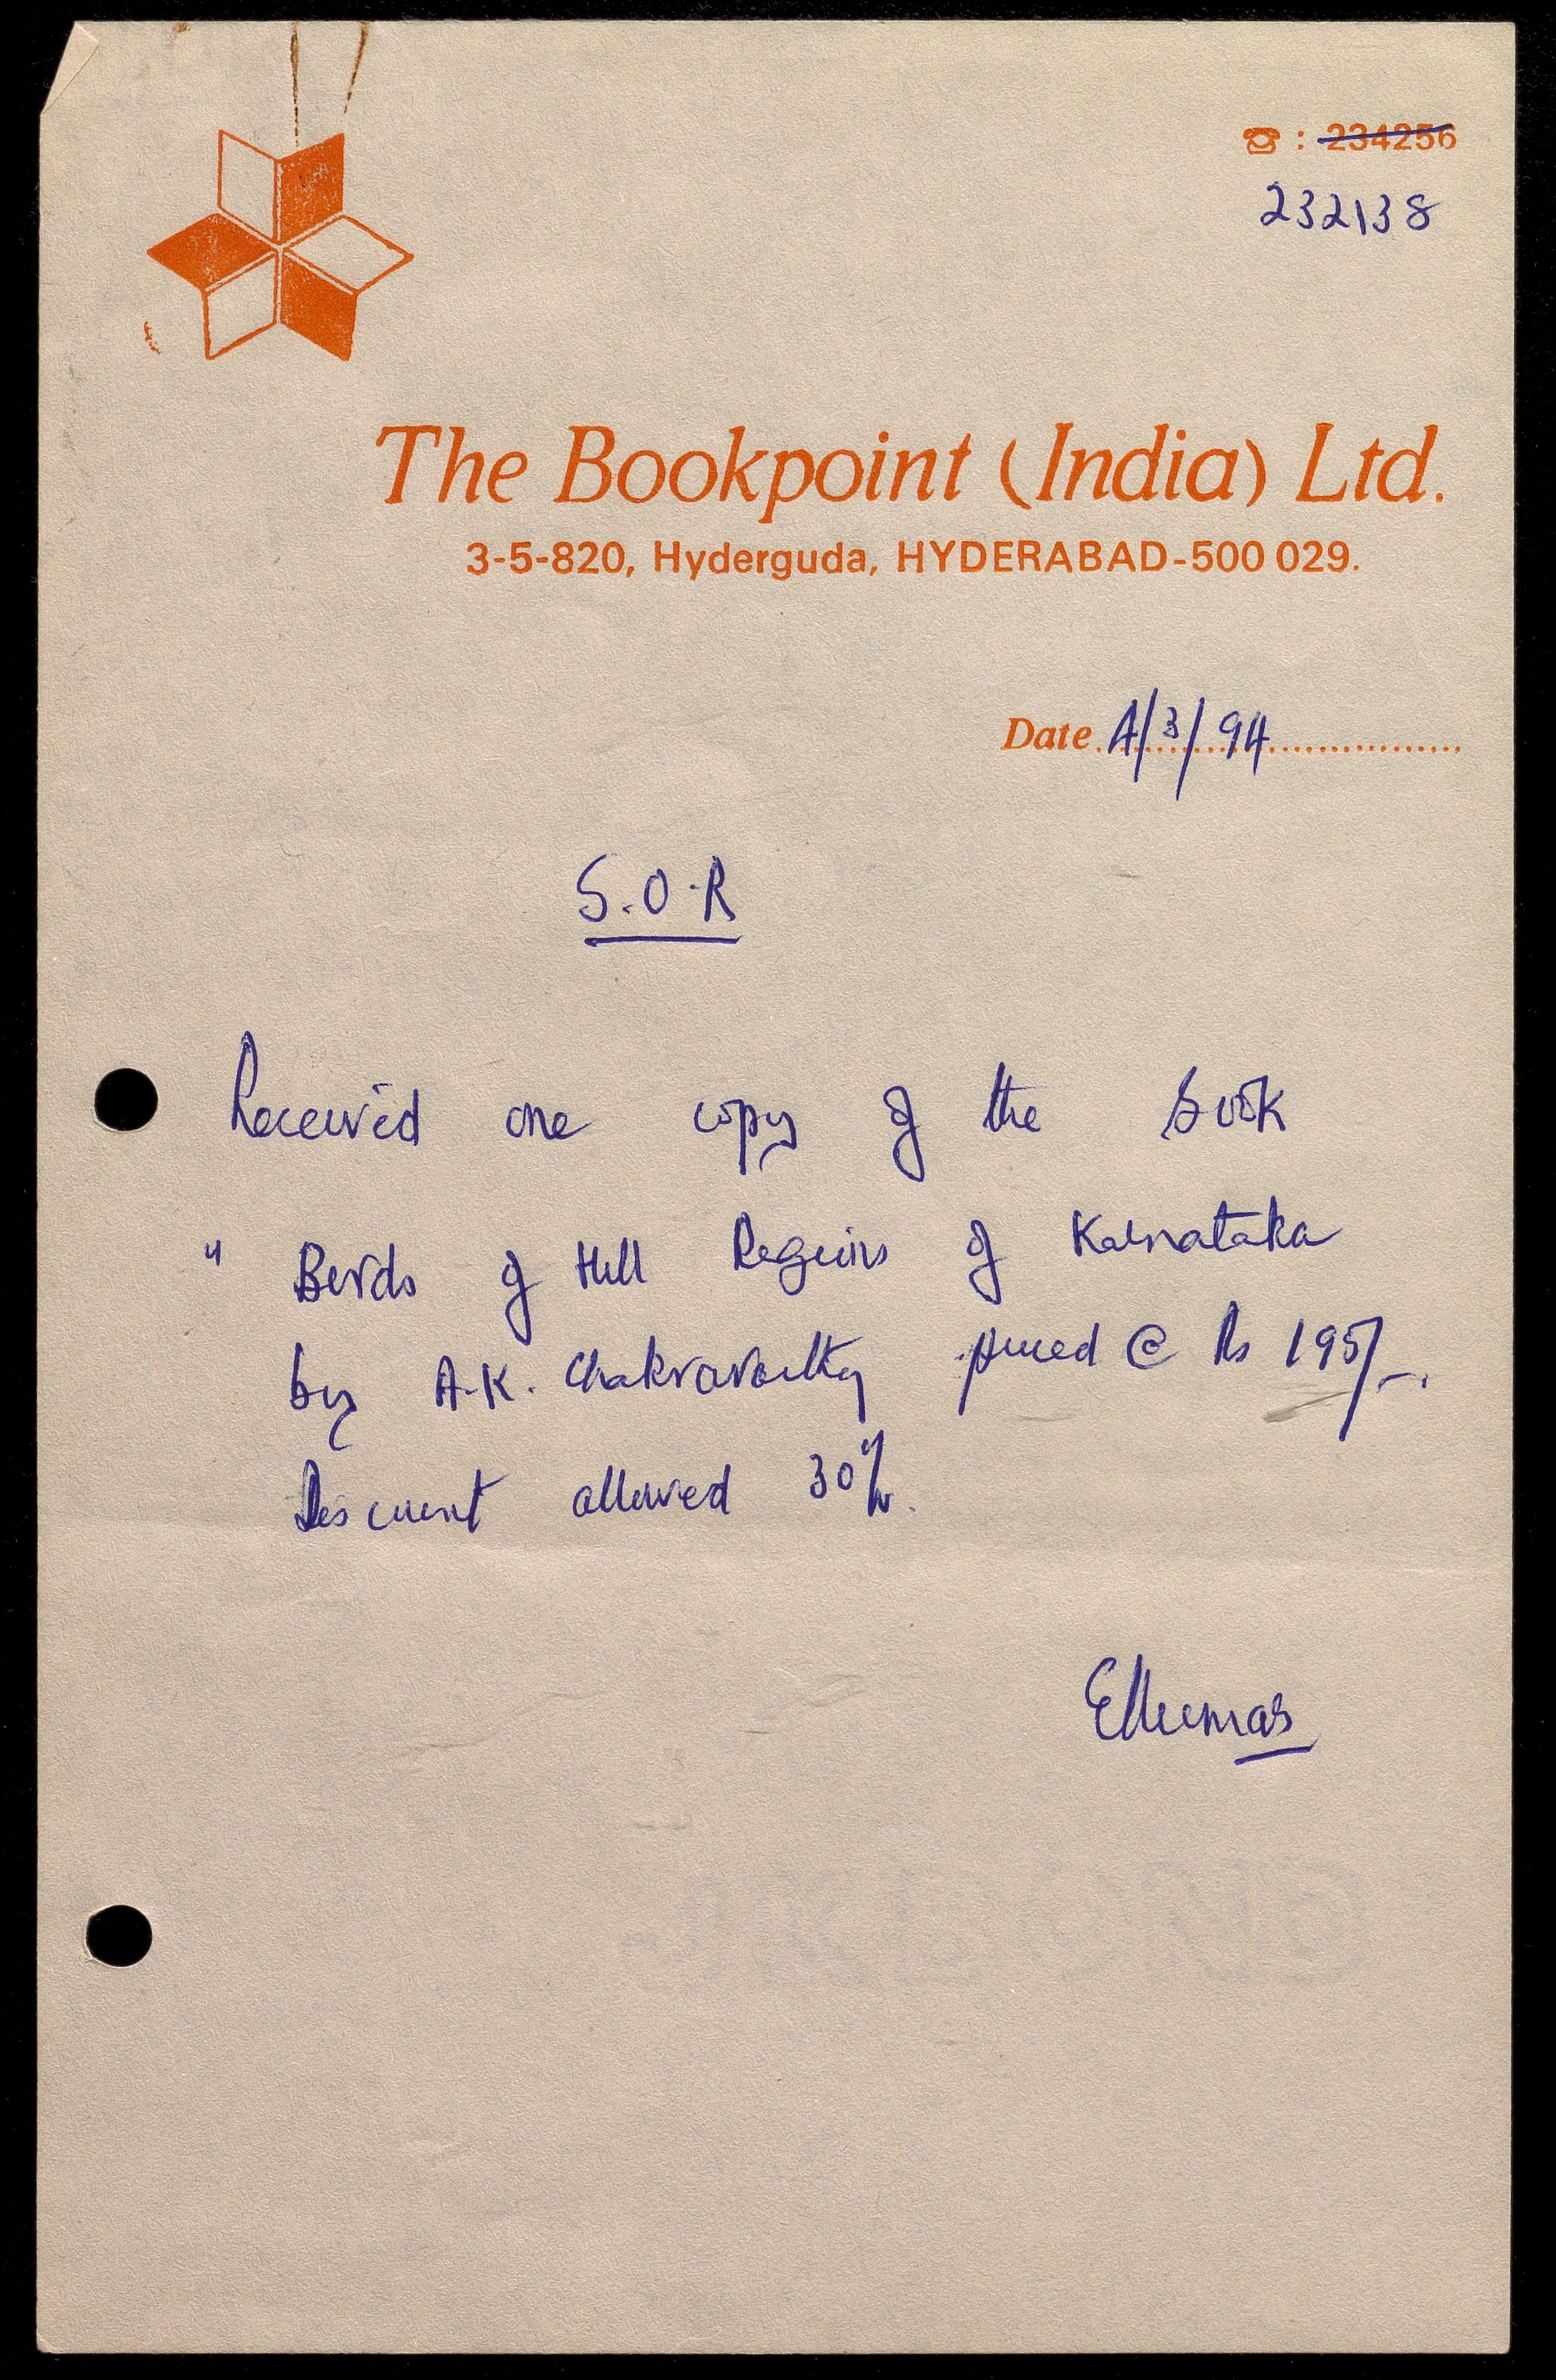 ☎ : 234256
232138
The Bookpoint (India) Ltd.
3-5-820, Hyderguda, HYDERABAD-500 029.
Date 4/3/94
S.O.R
Received one copy of the book
" Birds of Hill Regions of Karnataka
by A.K. Chakravarthy priced @ Rs 195/-.
Discount allowed 30%.